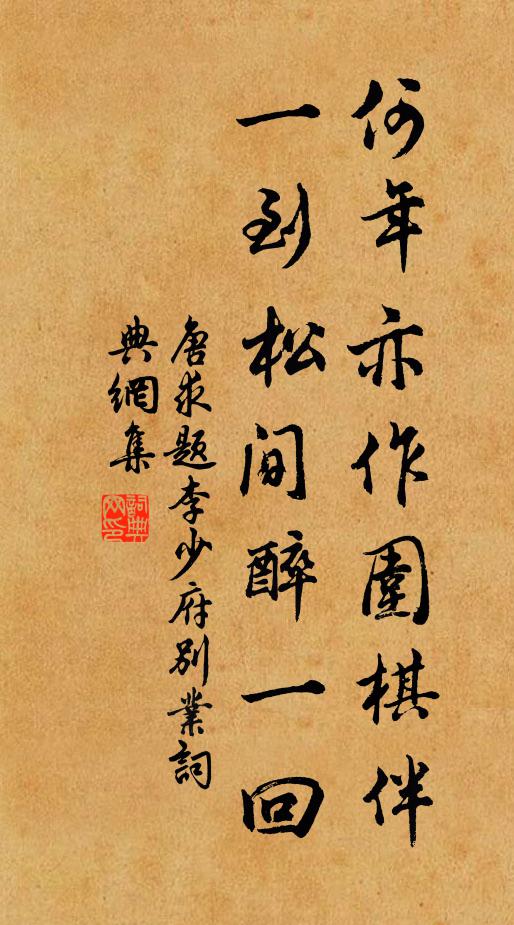 何年亦作圍棋伴
一到松间醉一回
唐求题李少府别業詞
典網集
詞典
網印